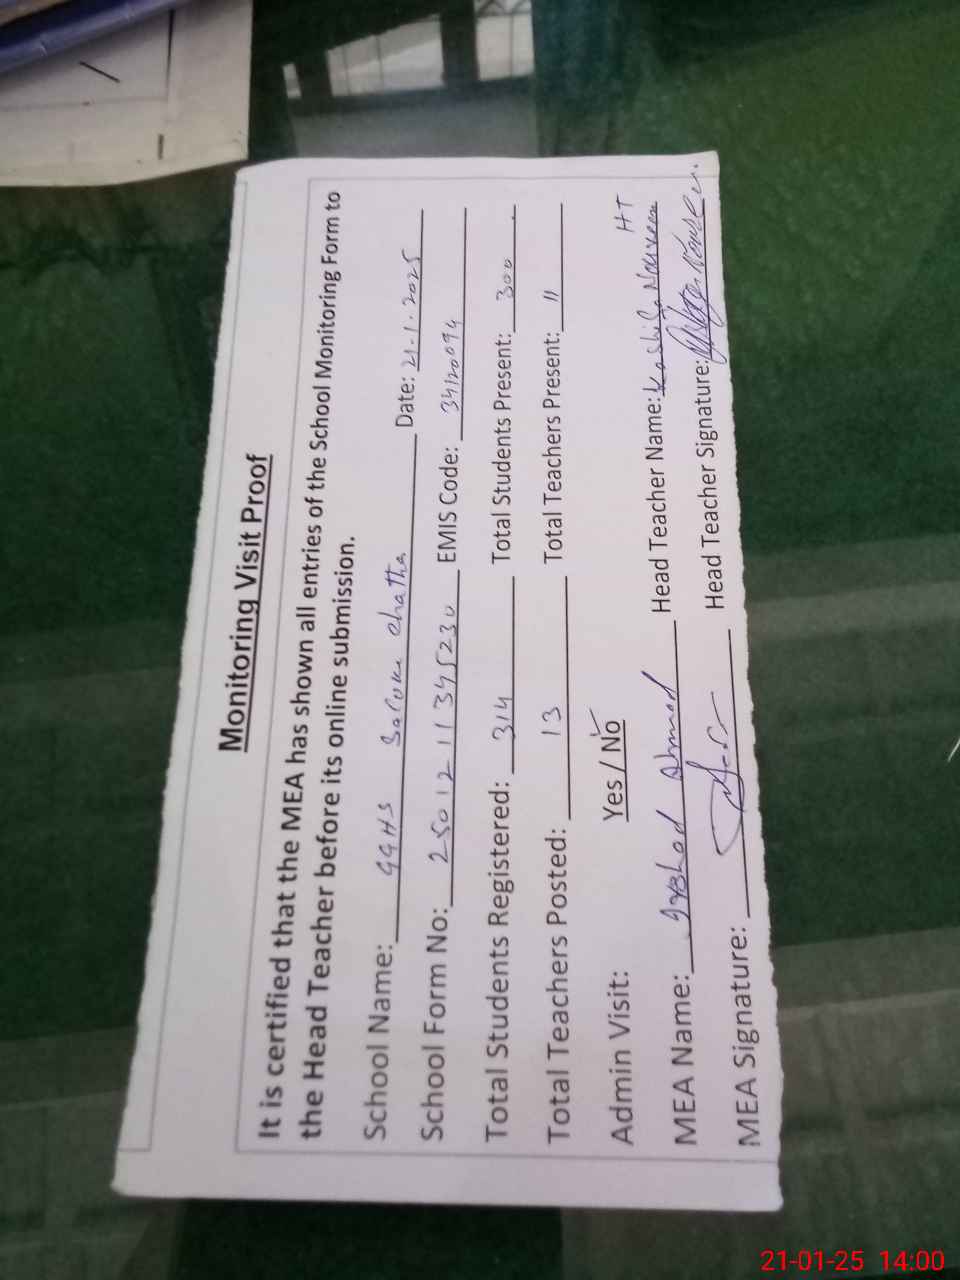 Monitoring Visit Proof
It is certified that the MEA has shown all entries of the School Monitoring Form to
the Head Teacher before its online submission.
School Name: GGHS Saloke Chatha Date: 21-1-2025
School Form No: 25012111345230 EMIS Code: 34120094
Total Students Registered: 314 Total Students Present: 300
Total Teachers Posted: 13 Total Teachers Present: 11
Admin Visit: Yes / No HT
MEA Name: Irshad Ahmad Head Teacher Name: Kashifa Noureen
MEA Signature: Head Teacher Signature:
21-01-25 14:00